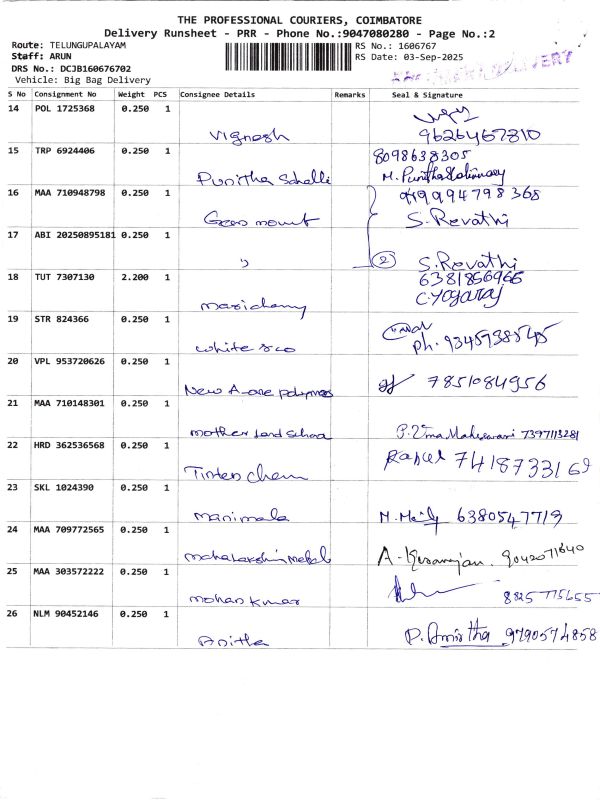 THE PROFESSIONAL COURIERS, COIMBATORE
Delivery Runsheet - PRR - Phone No.:9047080280 - Page No.:2
Route: TELUNGUPALAYAM
RS No.: 1606767
Staff: ARUN
RS Date: 03-Sep-2025
DRS No.: DCJB160676702
Vehicle: Big Bag Delivery
S No Consignment No Weight PCS Consignee Details Remarks Seal & Signature
14 POL 1725368 0.250 1
Vignesh 9626467810
15 TRP 6924406 0.250 1 8098638305
Punitha M. Punitha Stationary
16 MAA 710948798 0.250 1 919994798368
S. Revathi
17 ABI 20250895181 0.250 1
" 2 S. Revathi
18 TUT 7307130 2.200 1 6381856966
C. Yogaraj
19 STR 824366 0.250 1
White Ph. 9345738545
20 VPL 953720626 0.250 1
New A-one polymers 7851084956
21 MAA 710148301 0.250 1
P. Uma Maheswari 7397113281
22 HRD 362536568 0.250 1
Chem 7418733169
23 SKL 1024390 0.250 1
Manimala 6380547719
24 MAA 709772565 0.250 1
Mahalakshmi Metal 9042071640
25 MAA 303572222 0.250 1
Mohan Kumar 8825775655
26 NLM 90452146 0.250 1
Anitha P. Amirtha 9790574858